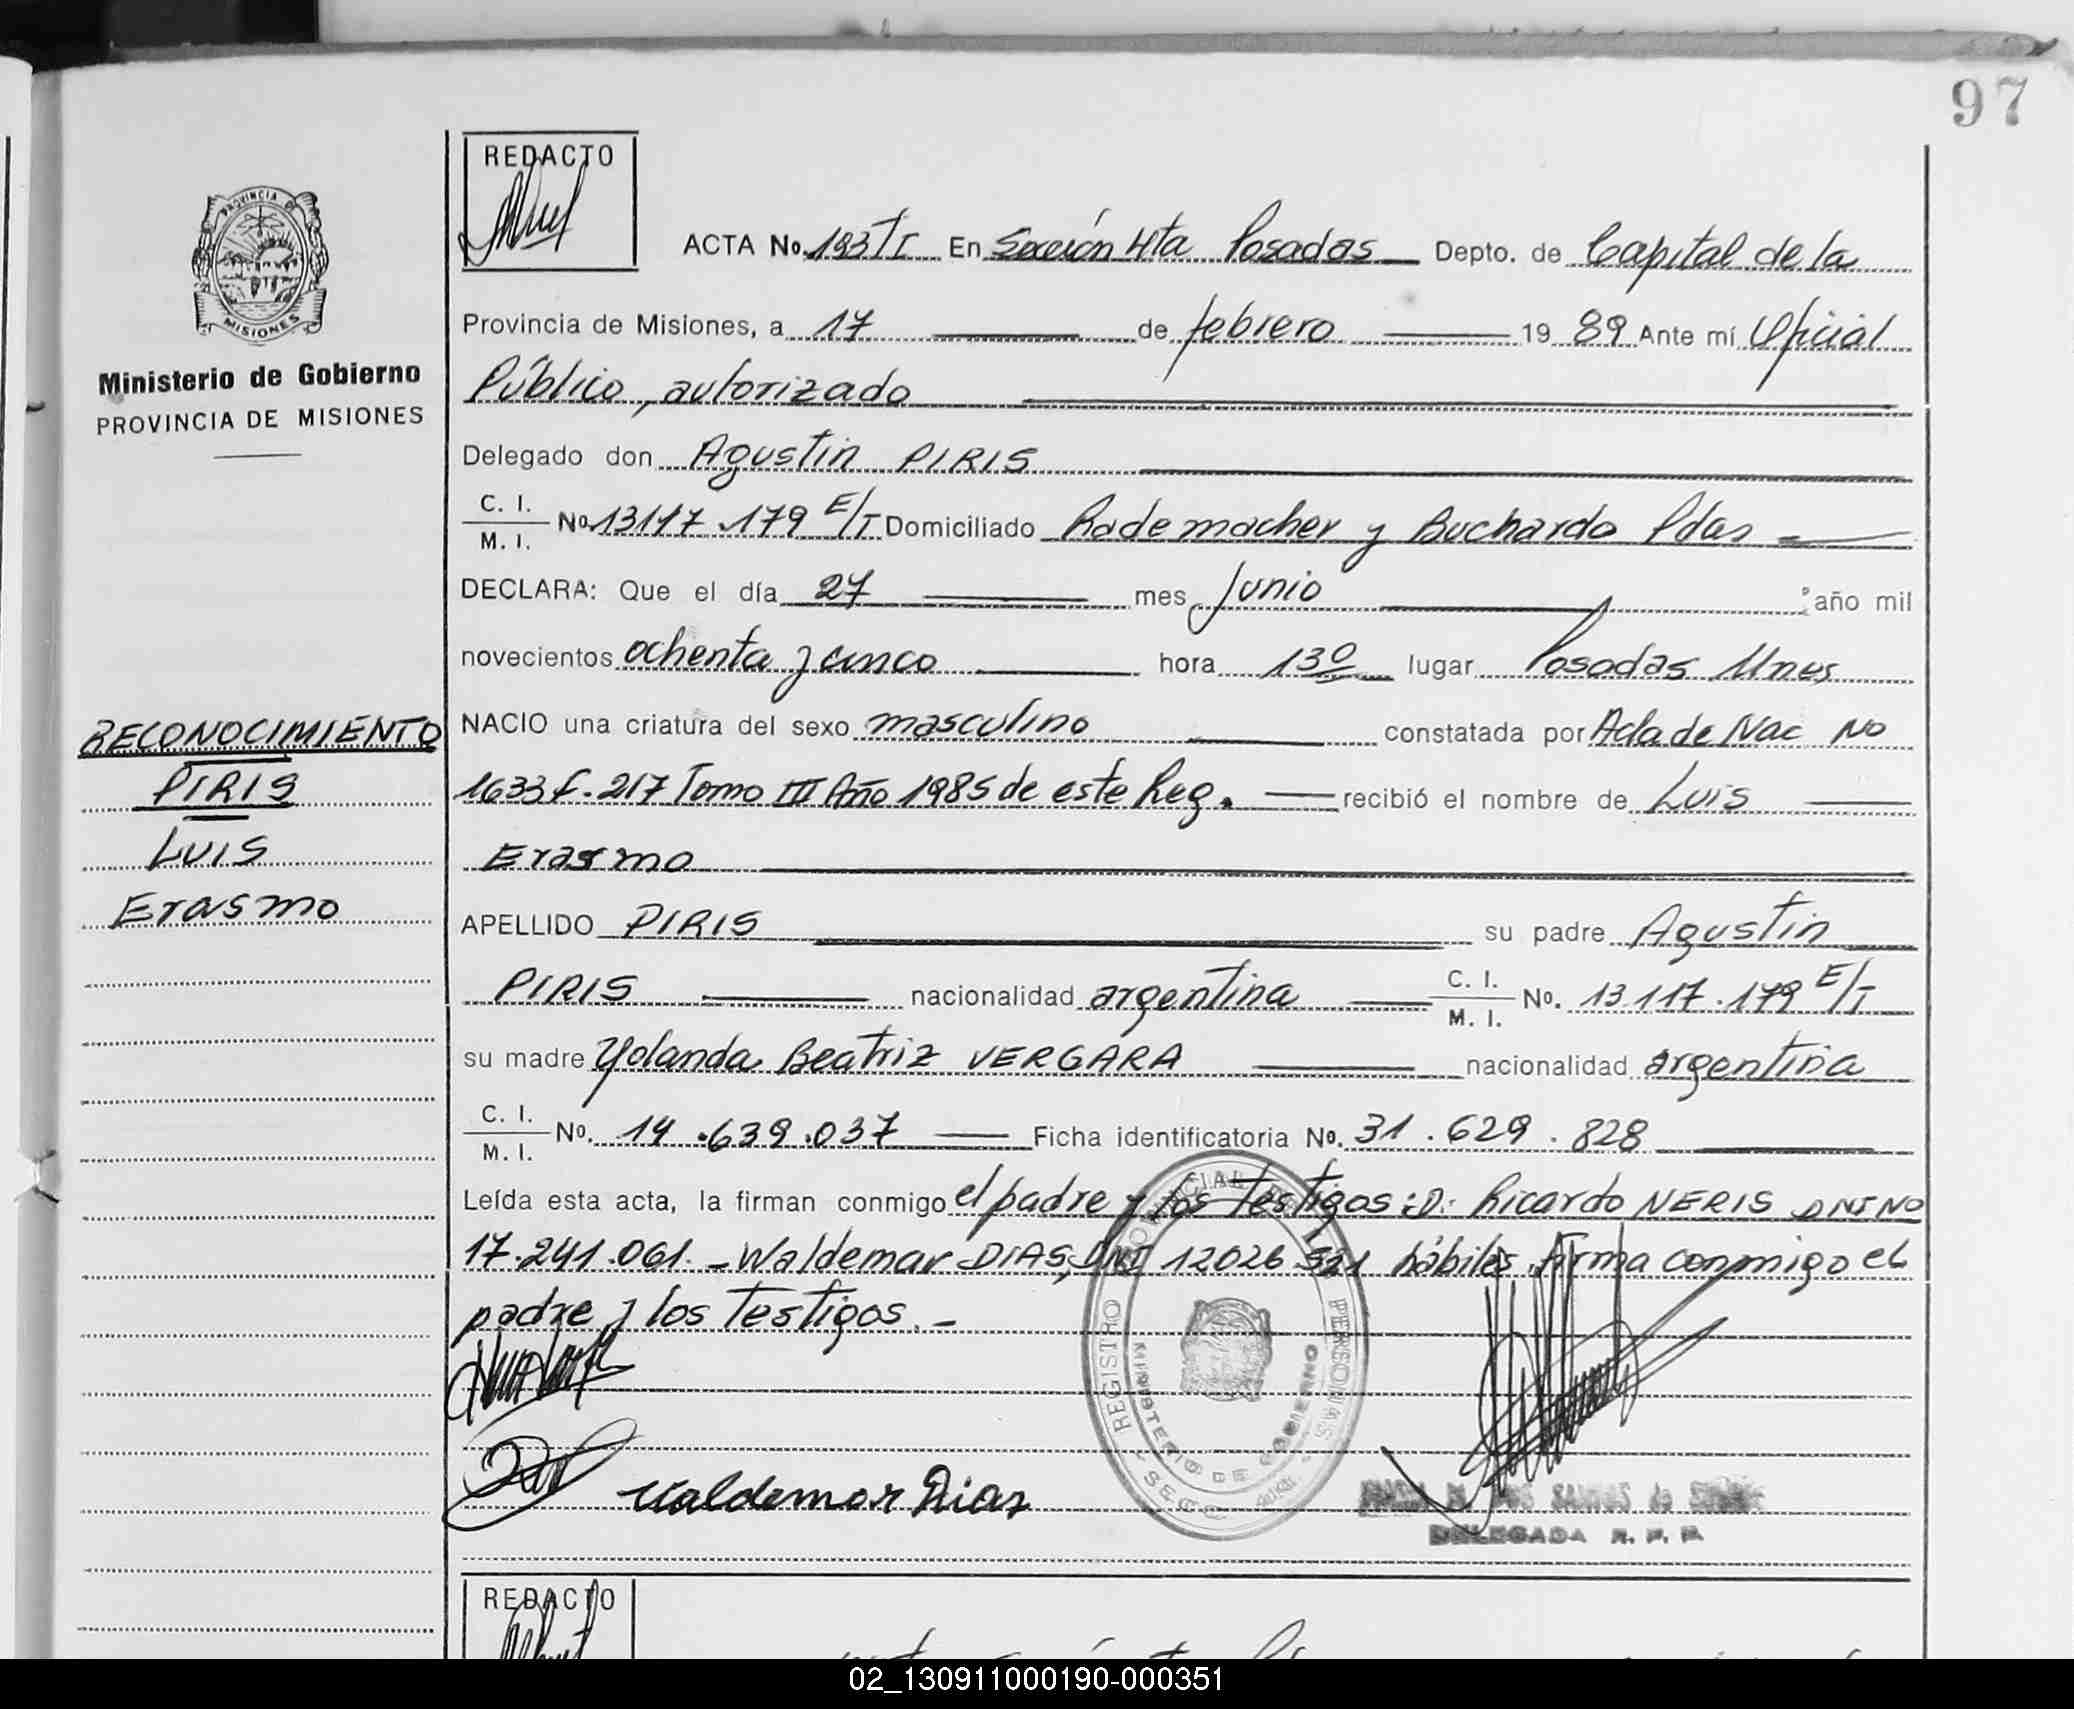 97
REDACTO
PROVINCIA DE
MISIONES
Ministerio de Gobierno
PROVINCIA DE MISIONES
ACTA No. 193 TI En Sección 4ta Posadas Depto. de Capital de la
Provincia de Misiones, a 17 de febrero 1989 Ante mí Oficial
Público, autorizado
Delegado don Agustin PIRIS
C. I.
M. I. No 13117.179 E/T Domiciliado Rademacher y Buchardo Pdas
DECLARA: Que el día 27 mes Junio año mil
novecientos ochenta y cinco hora 13º lugar Posadas Mnes
RECONOCIMIENTO
PIRIS
LUIS
Erasmo
NACIO una criatura del sexo masculino constatada por Acta de Nac No
1633 f. 217 Tomo III Año 1985 de este Reg. recibió el nombre de Luis
Erasmo
APELLIDO PIRIS su padre Agustin
PIRIS nacionalidad argentina C. I. M. I. No. 13.117.179 E/T
su madre Yolanda Beatriz VERGARA nacionalidad argentina
C. I.
M. I. No. 14.639.037 Ficha identificatoria No. 31.629.828
Leída esta acta, la firman conmigo el padre y los Testigos: D: Ricardo NERIS DNI NO
17.241.061. - Waldemar DIAS, DNI 12026 521 hábiles. firma conmigo el
padre y los Testigos. -
REGISTRO PROVINCIAL DE LAS PERSONAS
MINISTERIO DE GOBIERNO
Waldemar Dias
DELEGADA R. P. P.
REDACTO
02_130911000190-000351